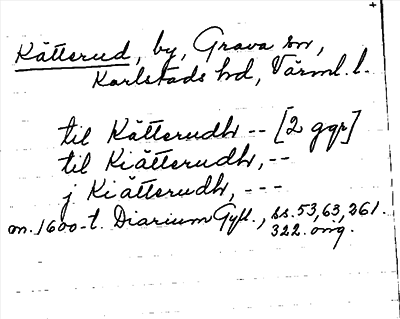 Kätterud, by, Grava sn,
Karlstads hd, Värml. l.
til Kätterudh -- [2 ggr]
til Kiätterudh, --
j Kiätterudh, ---
m. 1600-t. Diarium Gyll., ss. 53, 63, 261.
322. orig.